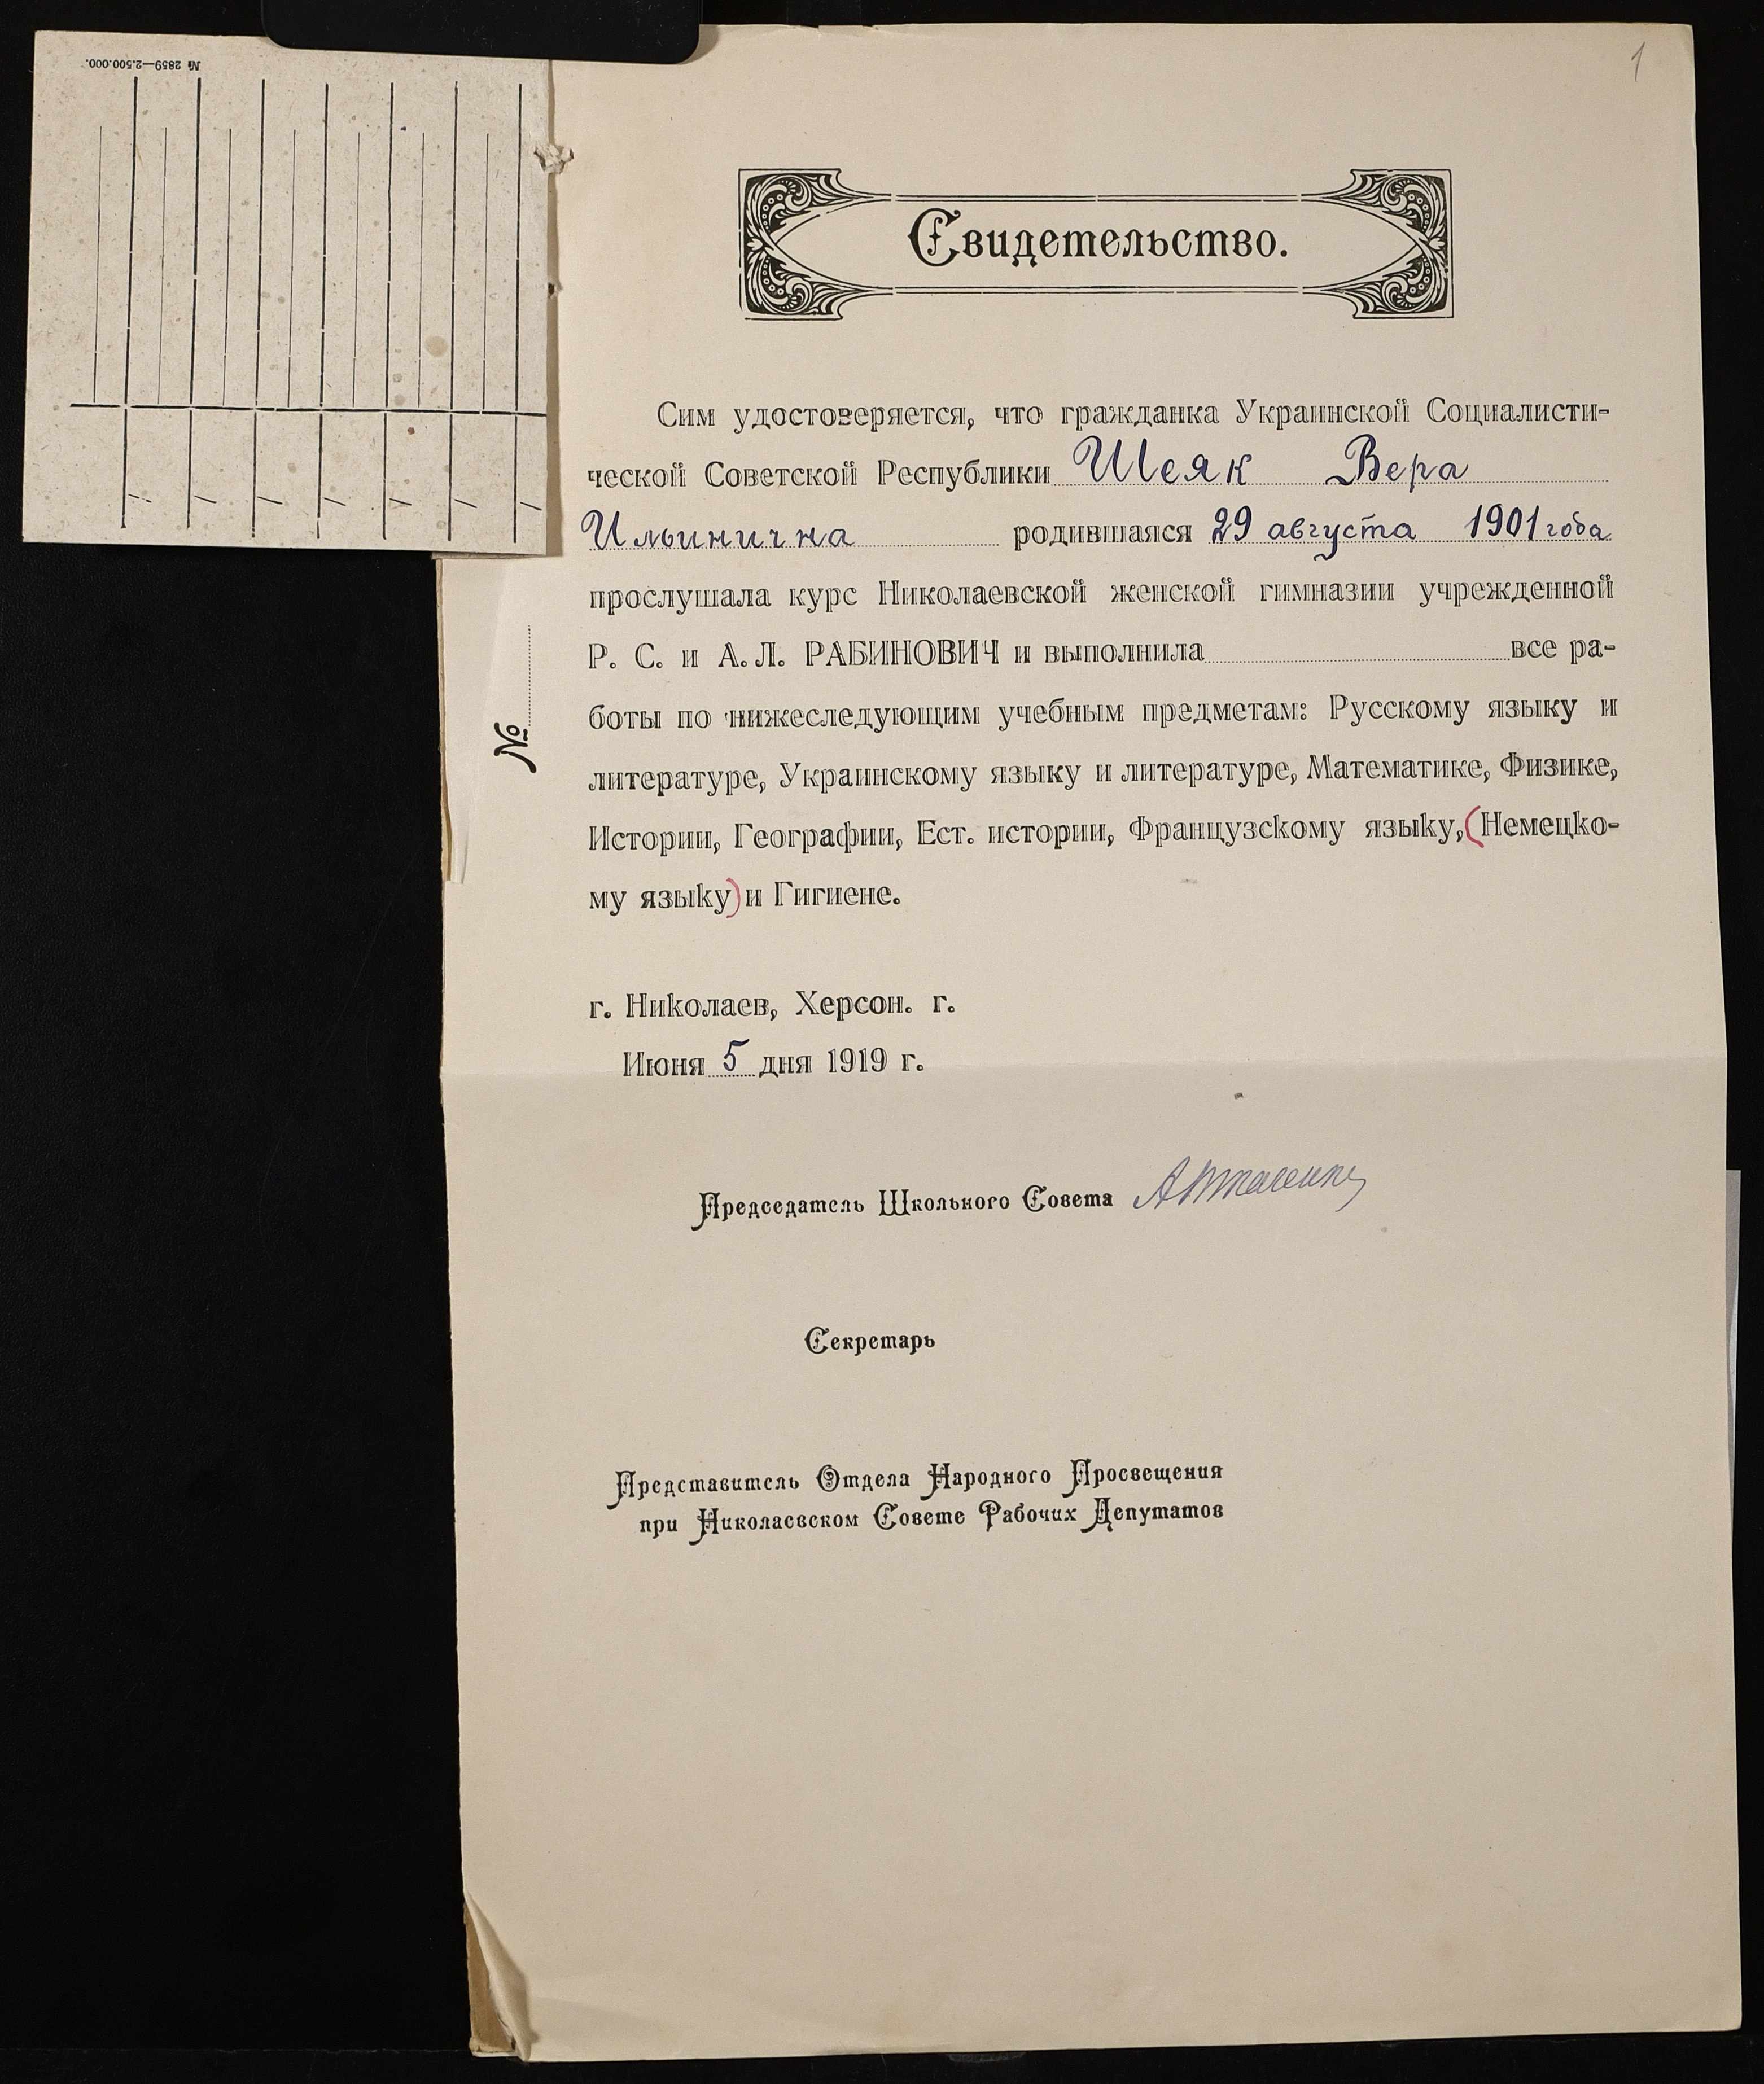 № 2859—2.500.000.
1
Свидетельство.
Сим удостоверяется, что гражданка Украинской Социалисти-
ческой Советской Республики Шеяк Вера
Ильинична родившаяся 29 августа 1901 года
прослушала курс Николаевской женской гимназии учрежденной
Р. С. и А. Л. РАБИНОВИЧ и выполнила все ра-
боты по нижеследующим учебным предметам: Русскому языку и
литературе, Украинскому языку и литературе, Математике, Физике,
Истории, Географии, Ест. истории, Французскому языку, (Немецко-
му языку) и Гигиене.
№
г. Николаев, Херсон. г.
Июня 5 дня 1919 г.
Председатель Школьного Совета
Секретарь
Представитель Отдела Народного Просвещения
при Николаевском Совете Рабочих Депутатов